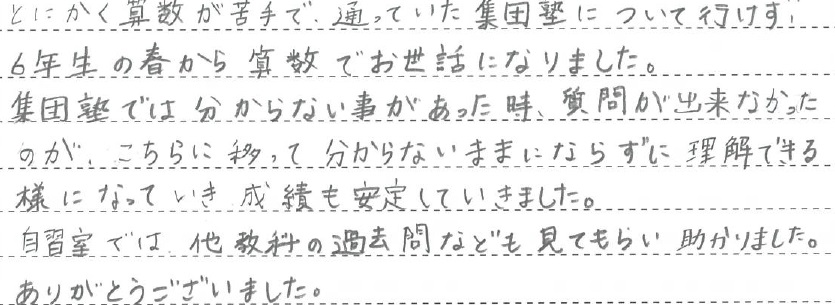 とにかく算数が苦手で、通っていた集団塾について行けず、
6年生の春から算数でお世話になりました。
集団塾では分からない事があった時、質問が出来なかった
のが、こちらに移って分からないままにならずに理解できる
様になっていき成績も安定していきました。
自習室では、他教科の過去問なども見てもらい助かりました。
ありがとうございました。